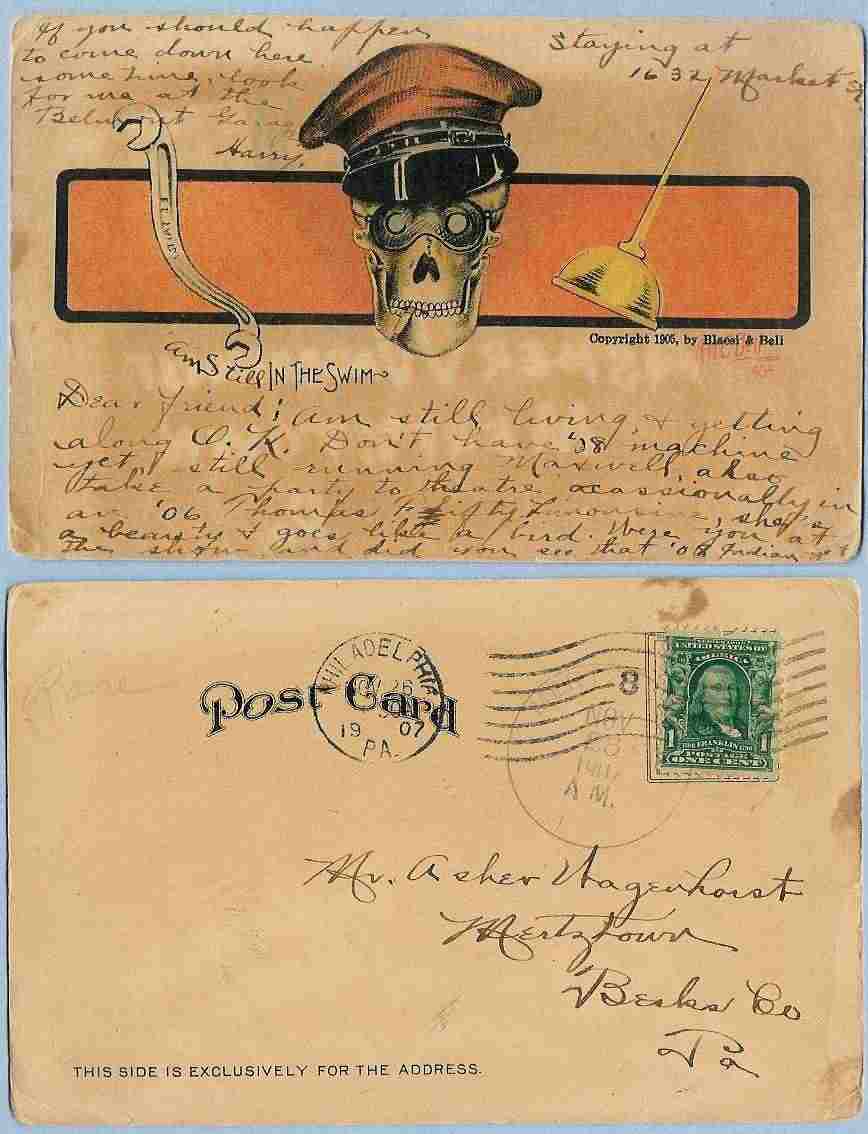 If you should happen
to come down here
some time, look
for me at the
Belmont Garage
Harry.
Staying at
1632 Market St
Copyright 1905, by Blaesi & Bell
Am Still IN THE SWIM
Dear friend; Am still living & getting
along O. K. Don't have '08 machine
yet, still running Maxwell, also
take a party to theatre ocassionally in
an '06 Thomas Fifty Limousine, she's
a beauty & goes like a bird. Were you at
the show and did you see that '08 Indian
POST CARD
PHILADELPHIA
26
1907
PA.
8
NOV
A M.
UNITED STATES OF
AMERICA
1 FRANKLIN 1
POSTAGE
ONE CENT
Mr. Asher Hagenhorst
Mertztown
Berks Co
Pa
THIS SIDE IS EXCLUSIVELY FOR THE ADDRESS.